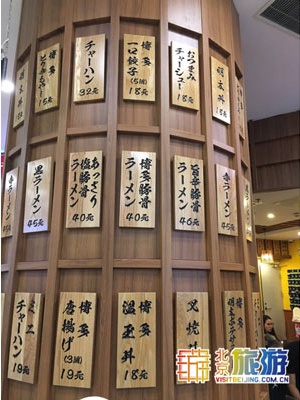 博多
ピリ辛もやし
15元
チャーハン
32元
博多
一口餃子
(5個)
18元
おつまみ
チャーシュー
18元
明太丼
黒ラーメン
45元
あっさり
塩豚骨
ラーメン
40元
博多
豚骨
ラーメン
40元
旨辛豚骨
ラーメン
46元
赤ラーメン
45元
ミニ
チャーハン
19元
博多
唐揚げ
(3個)
19元
博多
温玉丼
18元
叉焼丼
博多
北京旅游
VISITBEIJING.COM.CN